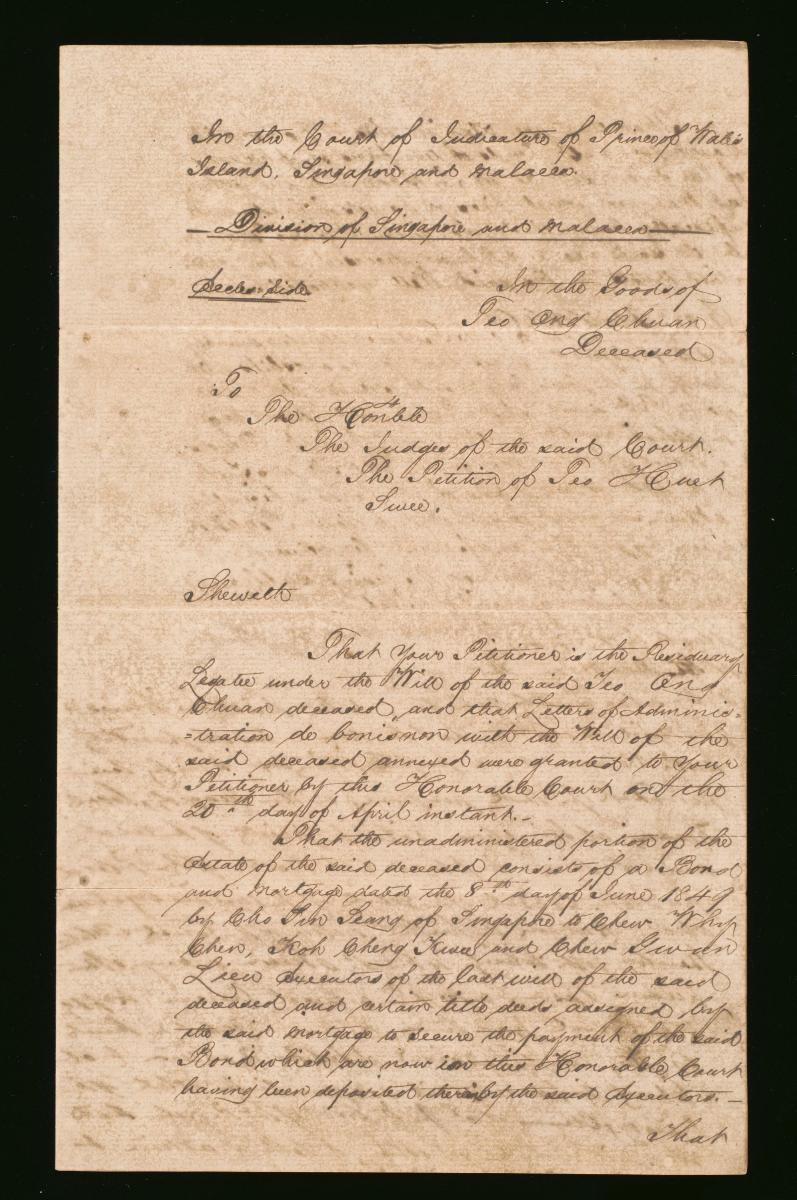 In the Court of Judicature of Prince of Wales
Island, Singapore and Malacca.
Division of Singapore and Malacca
Eccles: Side
In the Goods of
Teo Ong Chuan
Deceased
To
The Honble
The Judges of the said Court.
The Petition of Teo Huet
Swee.
Sheweth
That Your Petitioner is the Residuary
Legatee under the Will of the said Teo Ong
Chuan deceased, and that Letters of Adminis-
=tration de bonis non with the Will of the
said deceased annexed were granted to Your
Petitioner by this Honorable Court on the
20th day of April instant.-
That the unadministered portion of the
Estate of the said deceased consists of a Bond
and Mortgage dated the 8th day of June 1849
by Cho Seang of Singapore to Chew Why
Chen, Koh Cheng and Chew Gwan
Lieu Executors of the last will of the said
deceased and certain title deeds assigned by
the said Mortgage to secure the payment of the said
Bond which are now in this Honorable Court
having been deposited therein by the said Executors.-
That